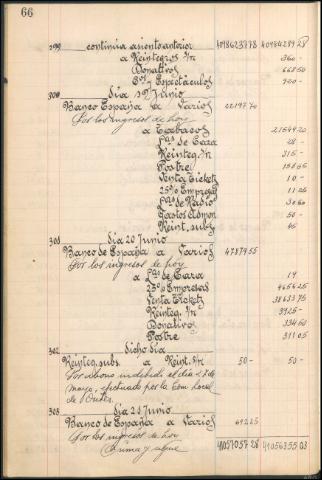 66
299 continúa asiento anterior 4098623778 4098428928
a Reintegros S/n 360-
Donativos 66850
Cos y Espectáculos 920-
300 Día 19 Junio
Banco España a Varios 2219770
Por los ingresos de hoy
a Tabacos 2154920
Las de Caza 28-
Reinteg. S/n 315-
Postre
Venta Tickets 10-
25% Empresas 11 25
Las de Radio
Gastos Admon 50-
Reint. subs. 45
301 Día 20 Junio
Banco de España a Varios 4787955
Por los ingresos de hoy
a Las de Caza 19
25% Empresas 465625
Venta Tickets 3863375
Reinteg. S/n 3925-
Donativos 33450
Postre 31105
302 Dicho día
Reinteg. subs. a Reint. S/n 50- 50-
Por abono indebido el día 27 de
Mayo, efectuado por la Com. Local
de
303 Día 21 Junio
Banco de España a Varios 69225
Por los ingresos de hoy
Suma y sigue 4105705728 4105635503